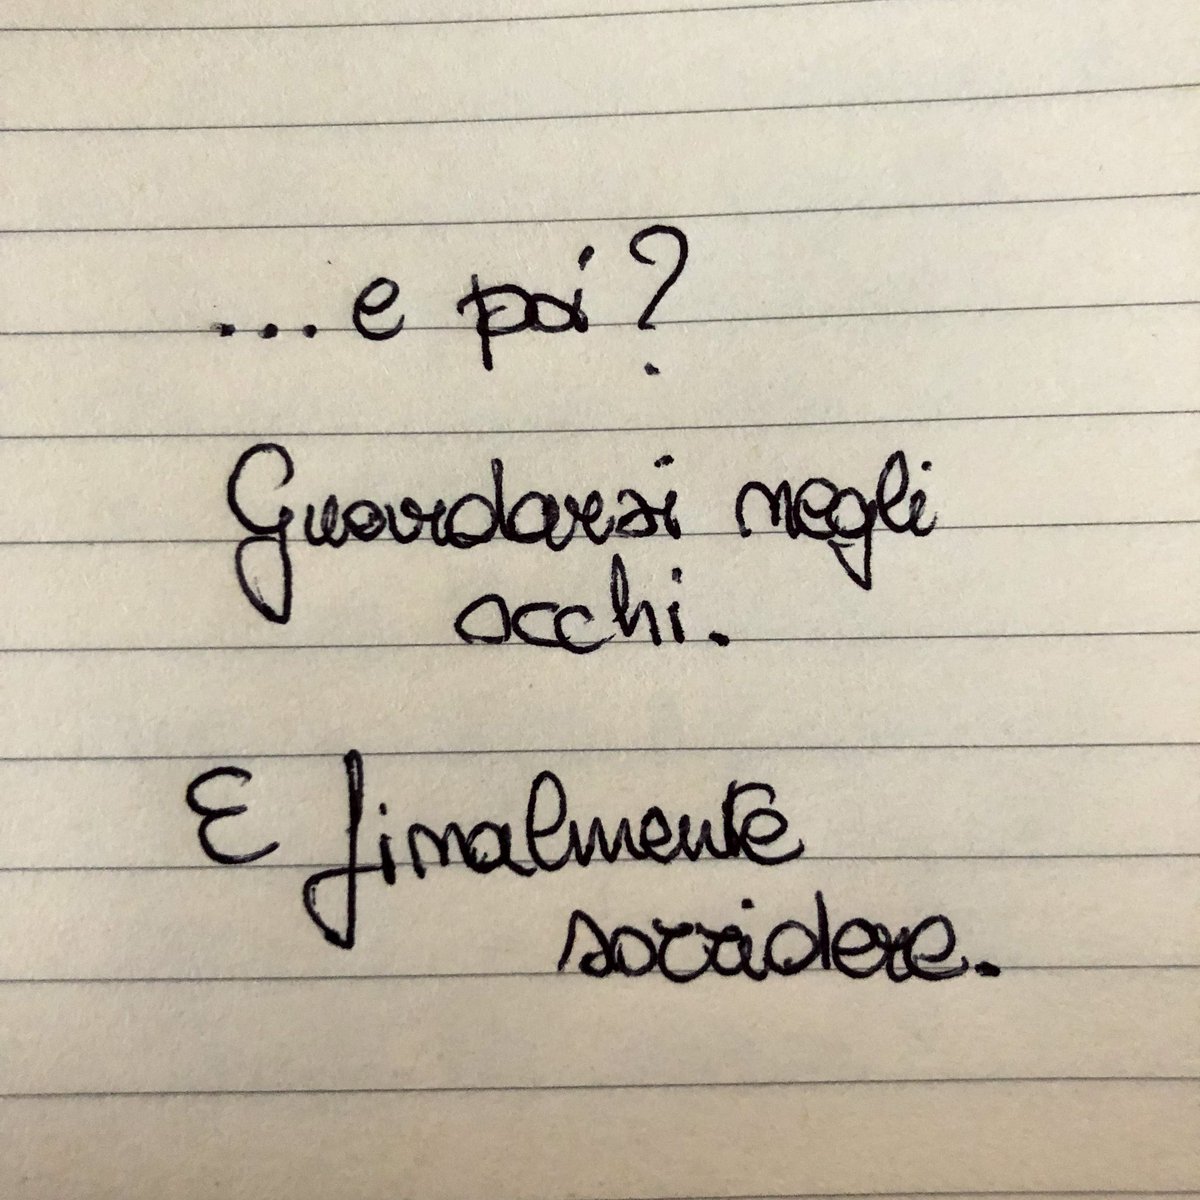 ...e poi?
Guardarsi negli
occhi.
E finalmente
sorridere.